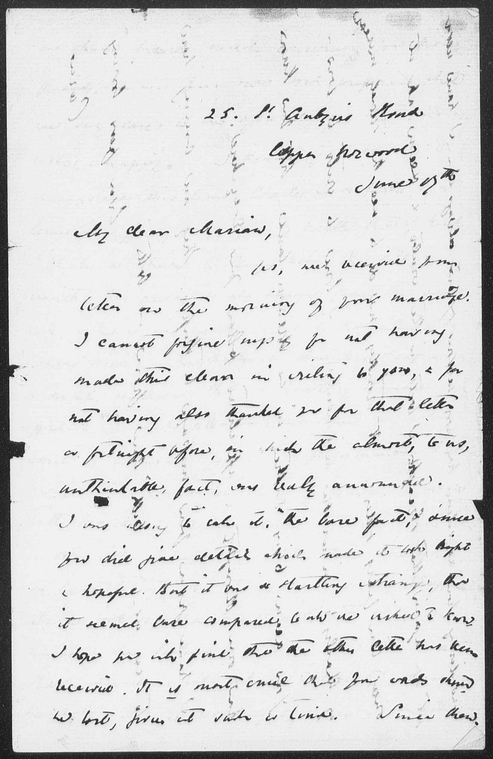 25. St Aubyns Road
Upper Norwood
June 17th
My dear Marian,
Yes, we received your
letter on the morning of your marriage.
I cannot forgive myself for not having
made this clear in writing to you, & for
not having also thanked you for that letter
a fortnight before, in which the almost, to us,
unthinkable, fact, was really announced.
I was wrong to call it, "the bare fact", since
you did give details which made it look bright
& hopeful. But it was so startling & strange, that
it seemed bare compared to all we wished to know.
I hope you will find that the other letter has been
received. It is most cruel that your words should
be lost, given at such a time. Since then